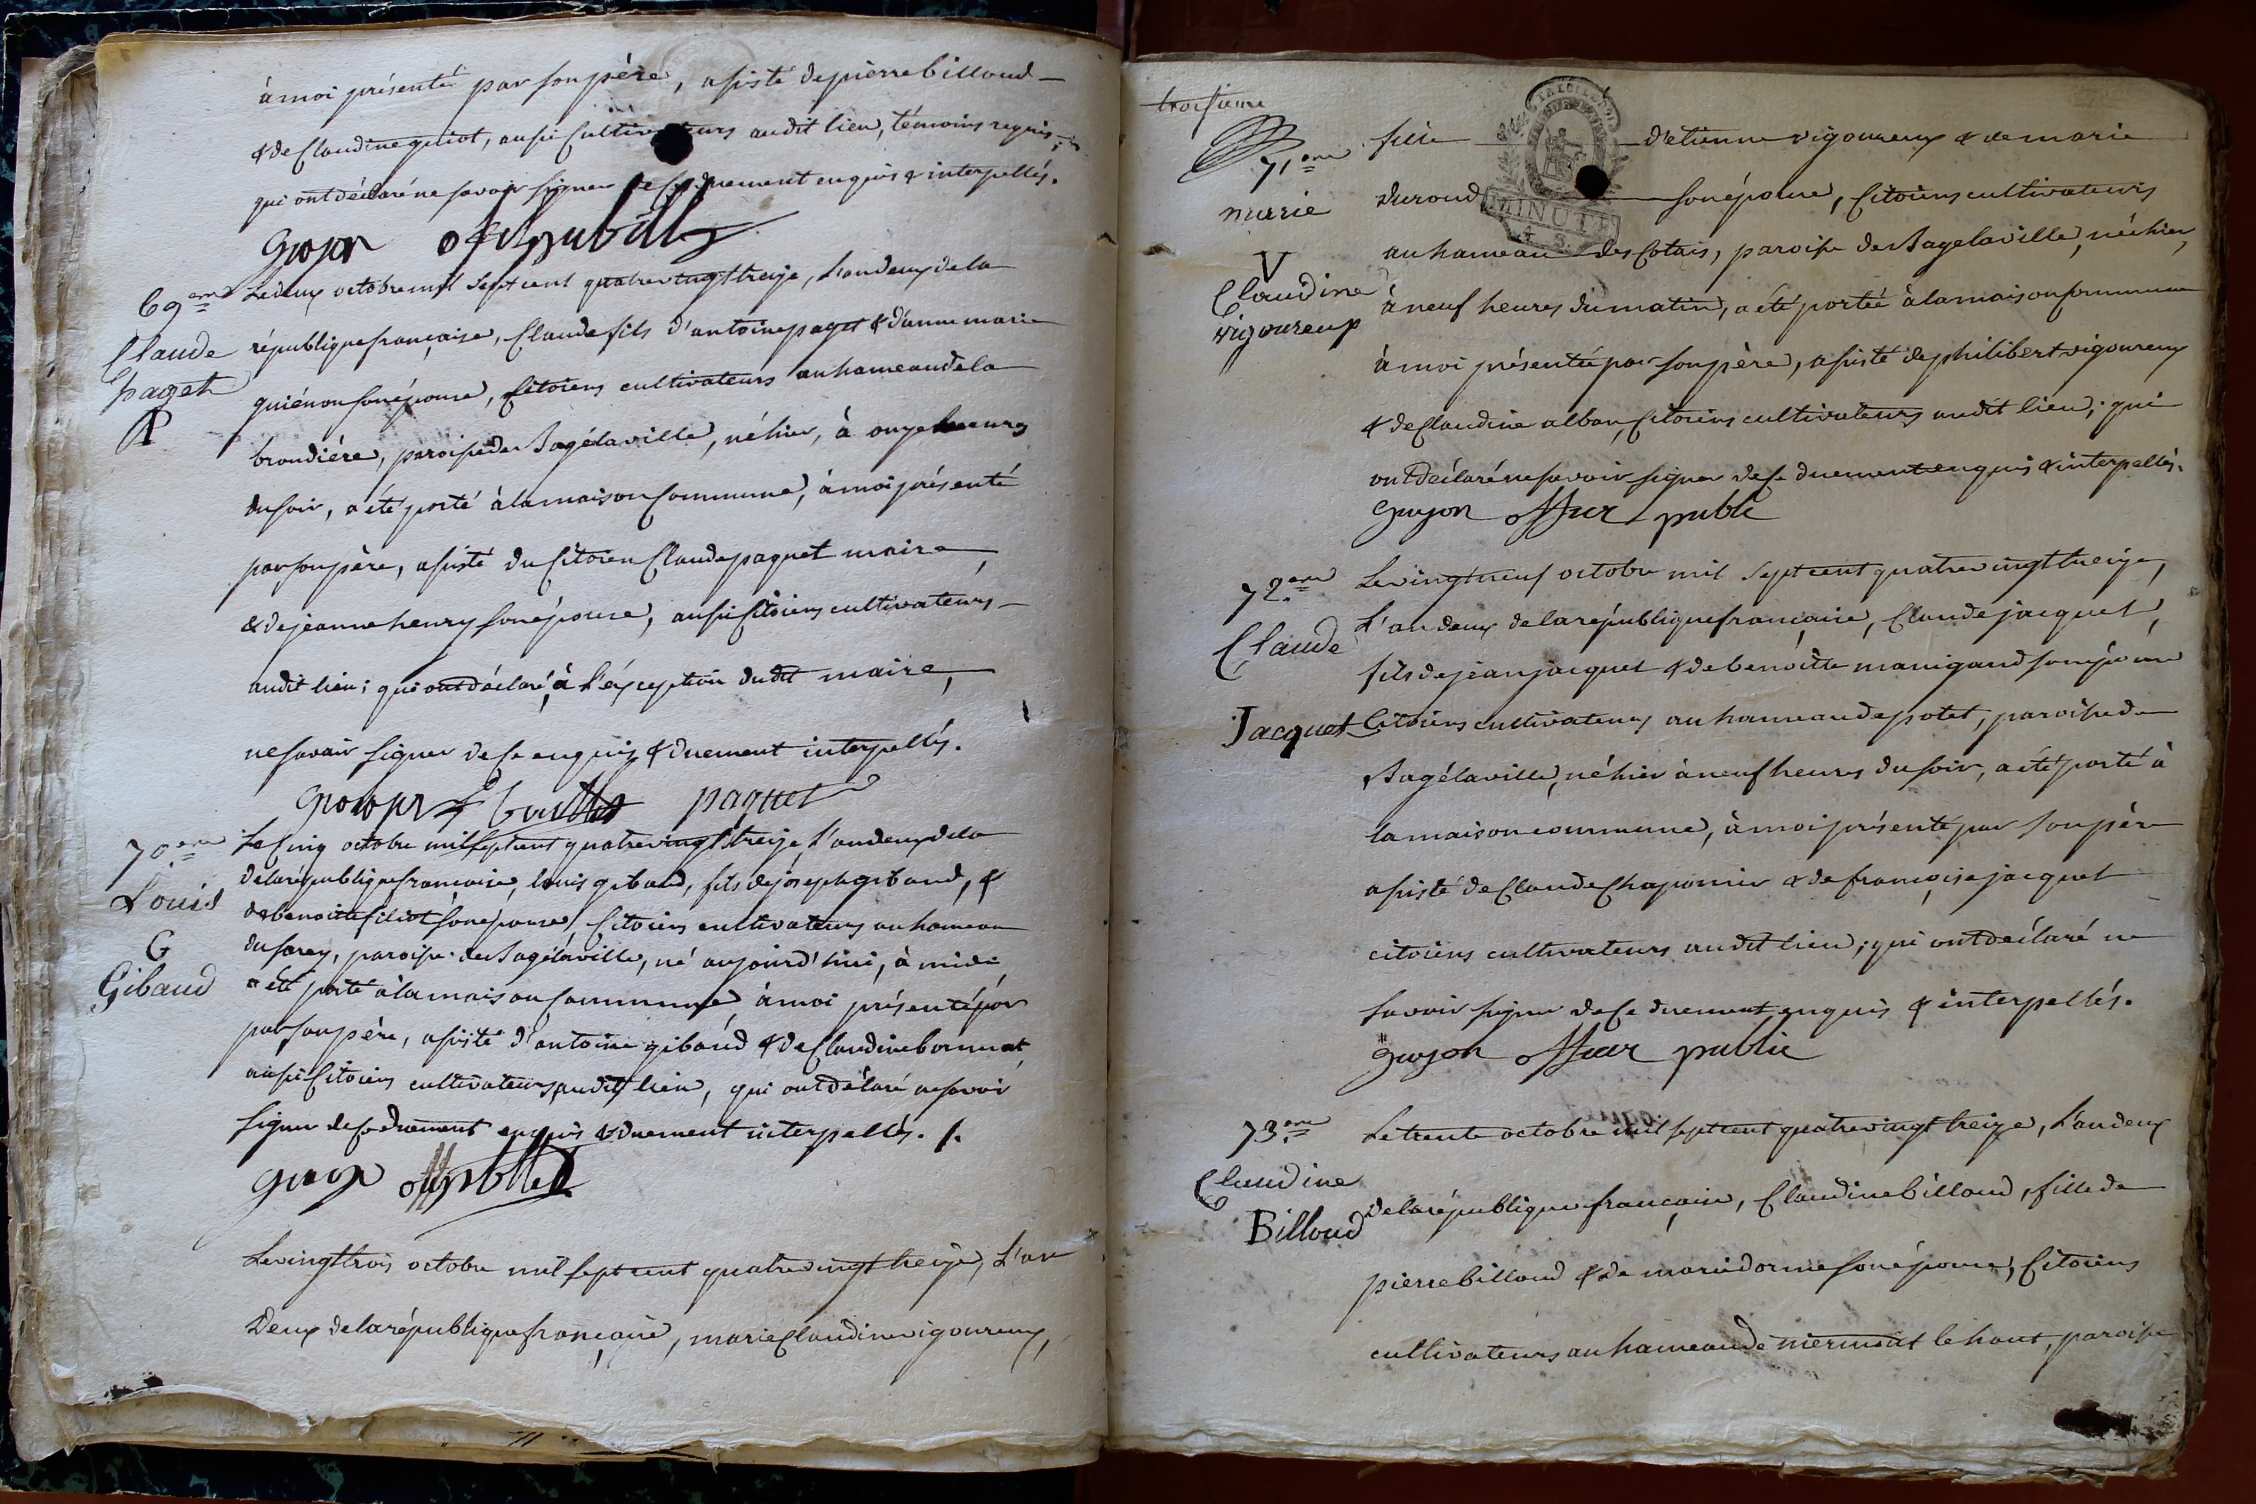 à moi présenté par son père, assisté de pierre billoud
& de Claudine guiot, aussi Cultivateurs audit lieu, témoins requis
qui ont déclaré ne savoir signer de ce duement enquis & interpellés.
69eme
Claude
paget
P
Le deux octobre mil sept cent quatre vingt treize, L'an deux de la
république française, Claude fils d'antoine paget & d'anne marie
guiénon son épouse, Citoiens cultivateurs au hameau de la
broudière, paroisse de Bagé la ville, né hier, à onze heures
du soir, a été porté à la maison Commune, à moi présenté
par son père, assisté du Citoien Claude paquet maire,
& de jeanne henry son épouse, aussi Citoiens cultivateurs
audit lieu; qui ont déclaré, à L'éxception dudit maire,
ne savoir signer de Ce enquis & duement interpellés.
paquet
70eme
Louis
G
Gibaud
Le Cinq octobre mil sept cent quatre vingt treize L'an deux de la
de la république française, louis gibaud, fils de joseph gibaud, &
de benoitte filiot son épouse, Citoiens cultivateurs au hameau
du saray, paroisse de Bagé la ville, né aujourd'hui, à midi
a été porté à la maison Commune, à moi présenté par
par son père, assisté d'antoine gibaud & de Claudine bornuat,
aussi Citoiens cultivateurs audit lieu, qui ont déclaré ne savoir
signer de Ce duement enquis & duement interpellés.
Le vingt trois octobre mil sept cent quatre vingt treize, L'an
Deux de la république française, marie Claudine vigoureux,
troisieme
71eme
marie
V
Claudine
vigoureux
fille d'etienne vigoureux & de marie
durand son épouse, Citoiens cultivateurs
au hameau des Cotais, paroisse de Bagé la ville, né hier,
à neuf heures du matin, a été portée à la maison Commune
à moi présentée par son père, assisté de philibert vigoureux
& de Claudine alban, Citoiens cultivateurs audit lieu; qui
ont Déclaré ne savoir signer de Ce duement enquis & interpellés.
guyon officier public
72eme
Claude
Jacquet
Le vingt neuf octobre mil sept cent quatre vingt treize,
L'an deux de la république française, Claude jacquet,
fils de jean jacquet & de benoitte manigand son épouse
Citoiens cultivateurs au hameau de potet, paroisse de
Bagé la ville, né hier à neuf heures du soir, a été porté à
la maison commune, à moi présenté par son père
assisté de Claude Chaponier & de françoise jacquet
citoiens cultivateurs audit lieu; qui ont déclaré ne
savoir signer de Ce duement enquis & interpellés.
guyon officier public
73eme
Claudine
Billoud
Le trente octobre mil sept cent quatre vingt treize, L'an deux
de la république française, Claudine billoud, fille de
pierre billoud & de marie dorme son épouse, Citoiens
cultivateurs au hameau de mermont le haut, paroisse
MINUTE